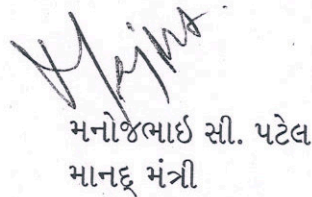 મનોજભાઇ સી. પટેલ
માનદ્ મંત્રી